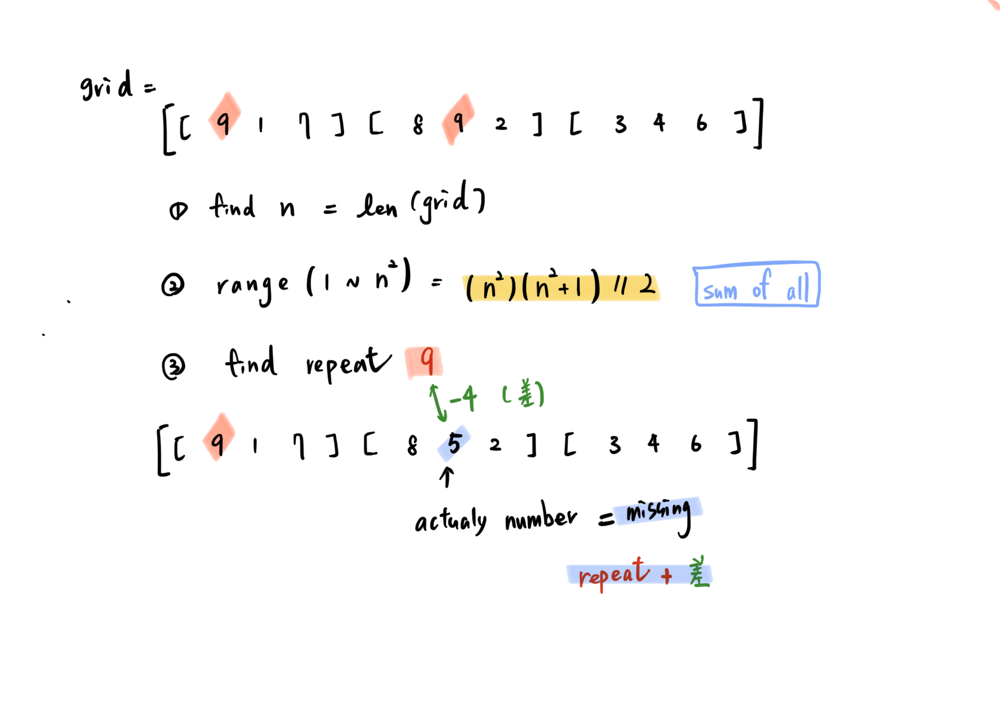 grid =
[[ 9 1 7 ] [ 8 9 2 ] [ 3 4 6 ]]
① find n = len (grid)
② range (1 ~ n²) = (n²)(n²+1) // 2 sum of all
③ find repeat 9
-4 (差)
[[ 9 1 7 ] [ 8 5 2 ] [ 3 4 6 ]]
actualy number = missing
repeat + 差